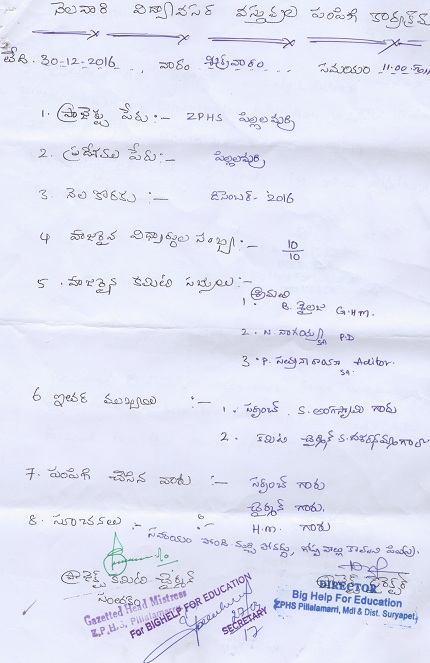 నెలవారి విద్యావసర వస్తువుల పంపిణి కార్యక్రమం
తేది. 30-12-2016 వారం శుక్రవారం సమయం 11.00
1. ప్రాజెక్టు పేరు:- ZPHS పిల్లలమర్రి
2. ప్రదేశము పేరు:- పిల్లలమర్రి
3. నెల కొరకు:- డిసెంబర్- 2016
4 హాజరైన విద్యార్థుల సంఖ్య:- 10/10
5. హాజరైన కమిటి సభ్యులు:-
శ్రీమతి
1. B. శైలజ G.H.M.
2. N. నాగయ్య SA P.D
3. P. సత్యనారాయణ SA Aditor.
6 ఇతర ముఖ్యులు :- 1. సర్పంచ్ S. గారు
2. కమిటి చైర్మన్ గారు
7. పంపిణి చేసిన వారు :- సర్పంచ్ గారు
చైర్మన్ గారు.
8. సూచనలు :- H.M. గారు
సమయం
ప్రాజెక్ట్ కమిటి చైర్మన్
సంతకం
ప్రాజెక్ట్ డైరెక్టర్
Gazetted Head Mistress
Z.P.H.S, Pillalamarri
For BIGHELP FOR EDUCATION
SECRETARY
DIRECTOR
Big Help For Education
ZPHS Pillalamarri, Mdl & Dist. Suryapet.